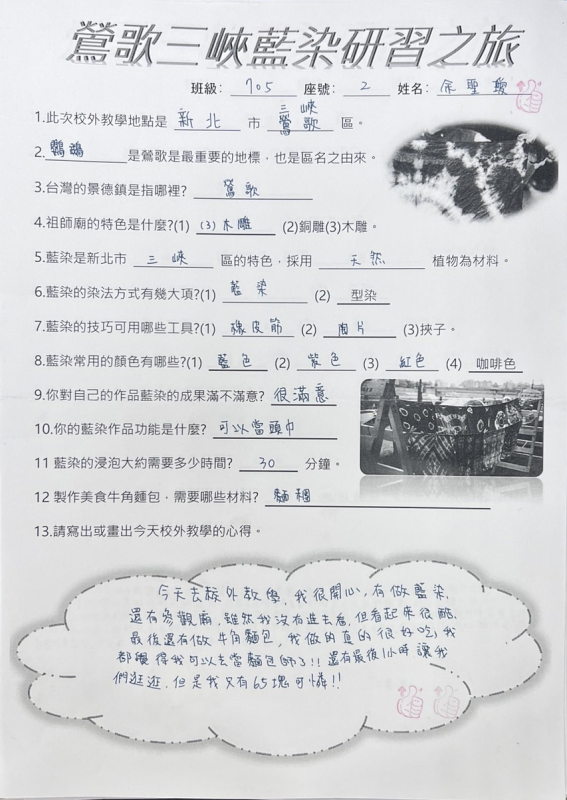 鶯歌三峽藍染研習之旅
班級: 705 座號: 2 姓名: 余聖
1.此次校外教學地點是 新北 市 三峽 鶯歌 區。
2. 鸚鵡 是鶯歌是最重要的地標，也是區名之由來。
3.台灣的景德鎮是指哪裡? 鶯歌
4.祖師廟的特色是什麼?(1) (3)木雕 (2)銅雕(3)木雕。
5.藍染是新北市 三峽 區的特色，採用 天然 植物為材料。
6.藍染的染法方式有幾大項?(1) 藍染 (2) 型染
7.藍染的技巧可用哪些工具?(1) 橡皮筋 (2) 圓片 (3)挾子。
8.藍染常用的顏色有哪些?(1) 藍色 (2) 紫色 (3) 紅色 (4) 咖啡色
9.你對自己的作品藍染的成果滿不滿意? 很滿意
10.你的藍染作品功能是什麼? 可以當頭巾
11 藍染的浸泡大約需要多少時間? 30 分鐘。
12 製作美食牛角麵包，需要哪些材料? 麵稠
13.請寫出或畫出今天校外教學的心得。
今天去校外教學，我很開心，有做藍染，
還有參觀廟，雖然我沒有進去看，但看起來很酷，
最後還有做牛角麵包，我做的真的很好吃，我
都覺得我可以去當麵包師了!!還有最後1小時讓我
們逛逛，但是我只有65塊可憐!!